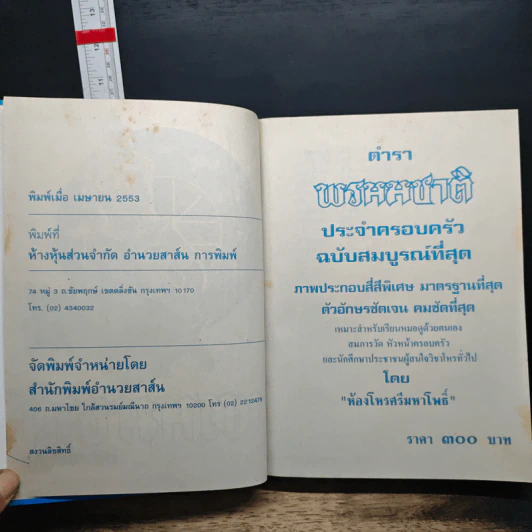 พิมพ์เมื่อ เมษายน 2553
พิมพ์ที่
ห้างหุ้นส่วนจำกัด อำนวยสาส์น การพิมพ์
74 หมู่ 3 ถ.ชัยพฤกษ์ เขตตลิ่งชัน กรุงเทพฯ 10170
โทร. (02) 4340032
จัดพิมพ์จำหน่ายโดย
สำนักพิมพ์อำนวยสาส์น
406 ถ.มหาไชย ใกล้สวนรมย์มณีนาถ กรุงเทพฯ 10200 โทร (02)
สงวนลิขสิทธิ์
ตำรา
พรหมชาติ
ประจำครอบครัว
ฉบับสมบูรณ์ที่สุด
ภาพประกอบสี่สีพิเศษ มาตรฐานที่สุด
ตัวอักษรชัดเจน คมชัดที่สุด
เหมาะสำหรับเรียนหมอดูด้วยตนเอง
สมภารวัด หัวหน้าครอบครัว
และนักศึกษาประชาชนผู้สนใจวิชาโหรทั่วไป
โดย
"ห้องโหรศรีมหาโพธิ์"
ราคา ๓๐๐ บาท